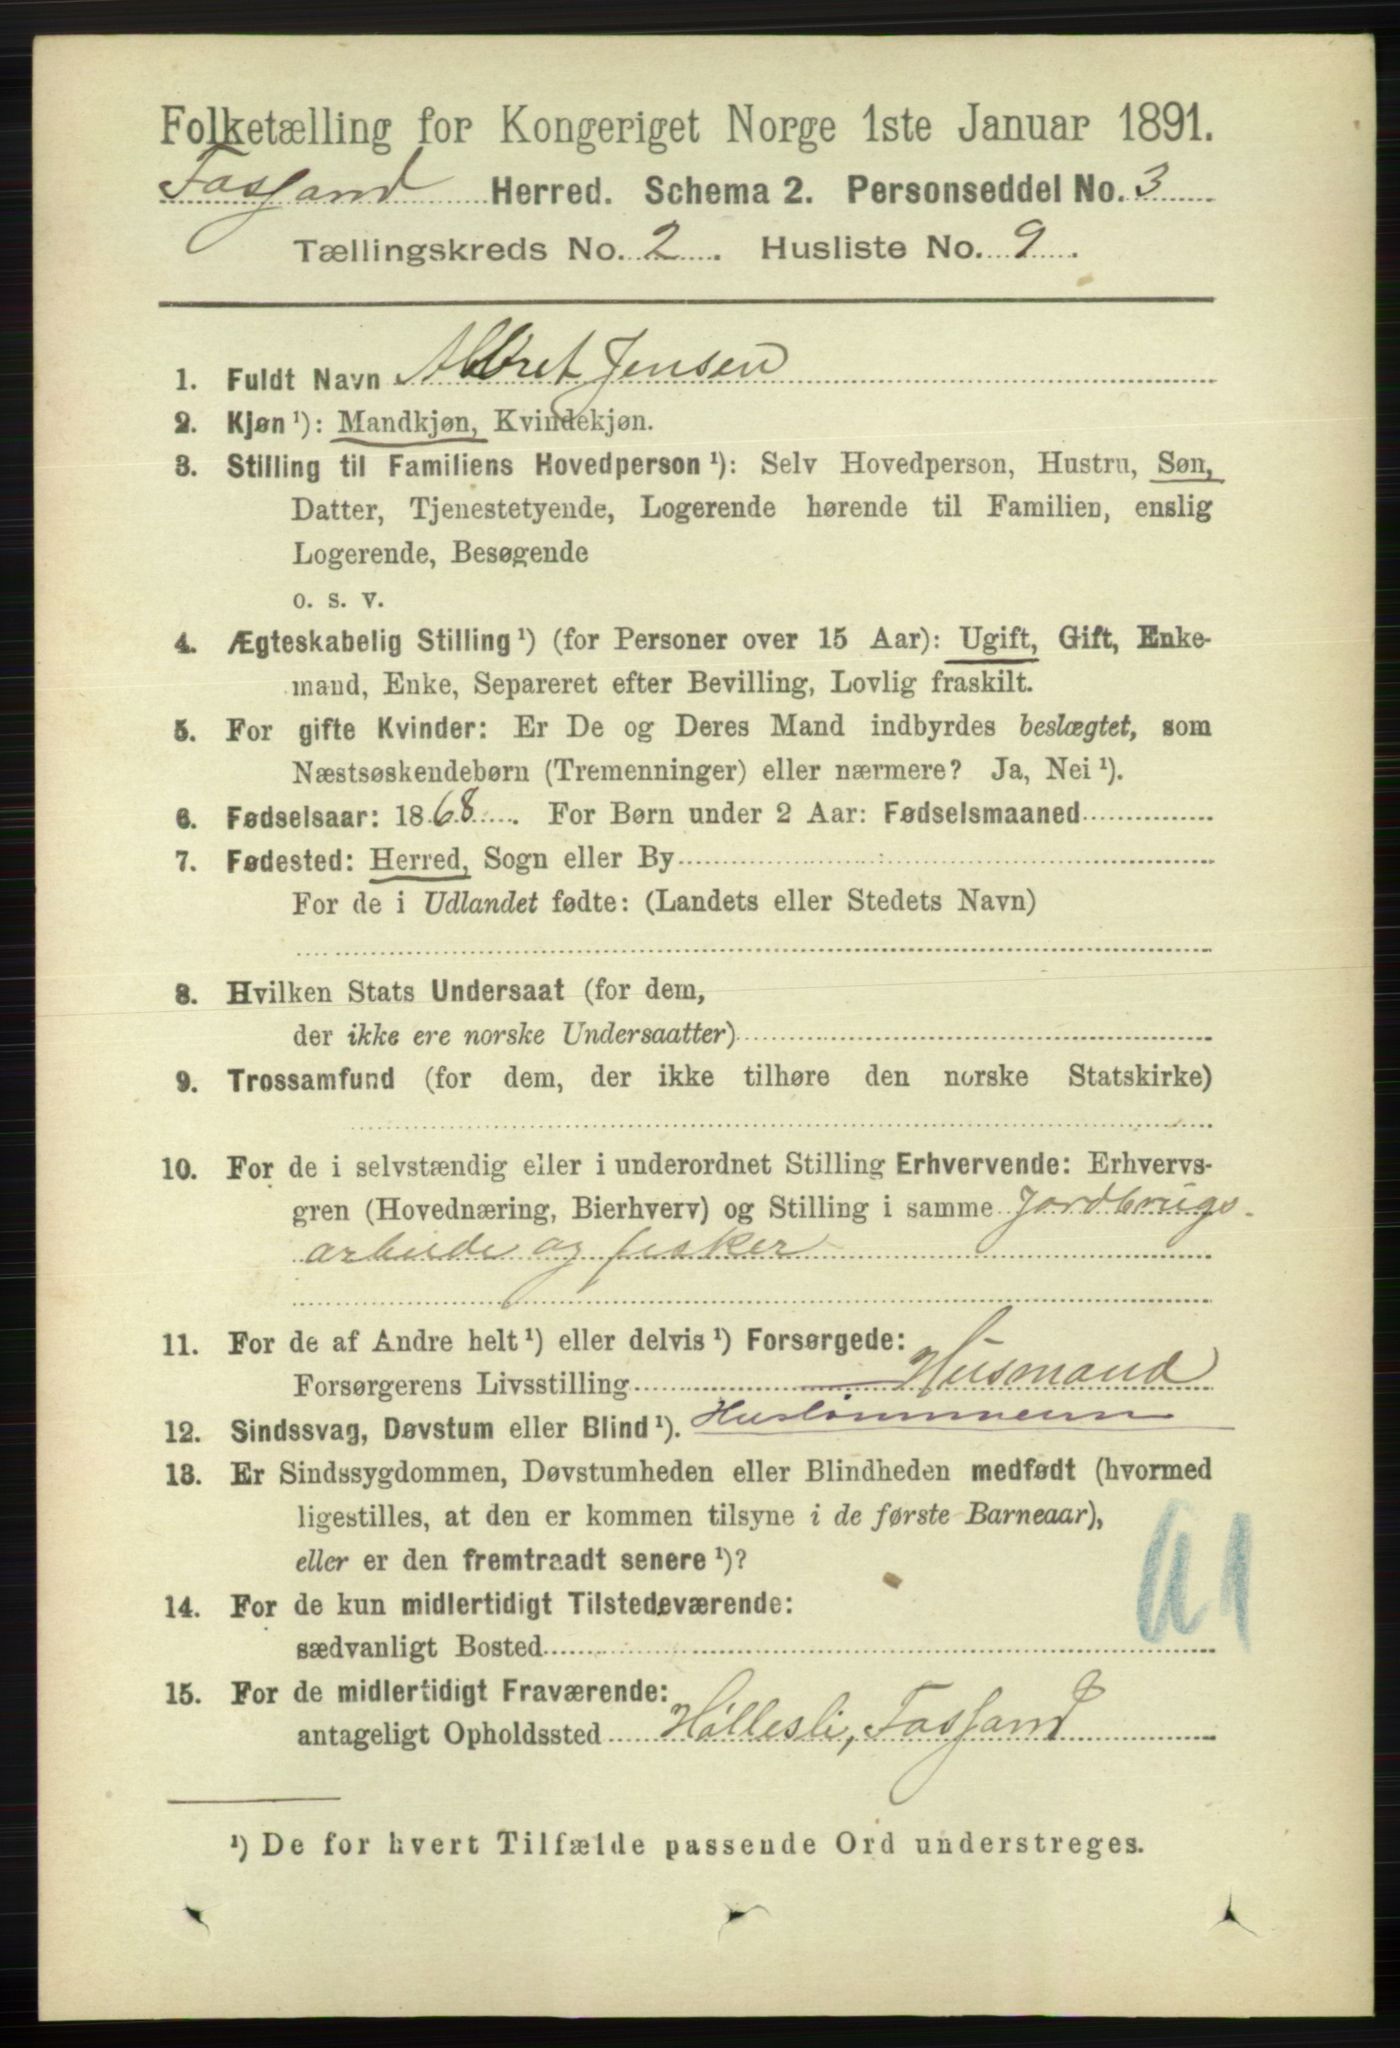 Folketælling for Kongeriget Norge 1ste Januar 1891.
Fosland Herred. Schema 2. Personseddel No. 3
Tællingskreds No. 2. Husliste No. 9.
1. Fuldt Navn Jensen
2. Kjøn ¹): Mandkjøn, Kvindekjøn.
3. Stilling til Familiens Hovedperson ¹): Selv Hovedperson, Hustru, Søn,
Datter, Tjenestetyende, Logerende hørende til Familien, enslig
Logerende, Besøgende
o. s. v.
4. Ægteskabelig Stilling ¹) (for Personer over 15 Aar): Ugift, Gift, Enke-
mand, Enke, Separeret efter Bevilling, Lovlig fraskilt.
5. For gifte Kvinder: Er De og Deres Mand indbyrdes beslægtet, som
Næstsøskendebørn (Tremenninger) eller nærmere? Ja, Nei ¹).
6. Fødselsaar: 1868. For Børn under 2 Aar: Fødselsmaaned
7. Fødested: Herred, Sogn eller By
For de i Udlandet fødte: (Landets eller Stedets Navn)
8. Hvilken Stats Undersaat (for dem,
der ikke ere norske Undersaatter)
9. Trossamfund (for dem, der ikke tilhøre den norske Statskirke)
10. For de i selvstændig eller i underordnet Stilling Erhvervende: Erhvervs-
gren (Hovednæring, Bierhverv) og Stilling i samme Jordbrugs-
arbeide og fisker
11. For de af Andre helt ¹) eller delvis ¹) Forsørgede:
Forsørgerens Livsstilling Husmand
12. Sindssvag, Døvstum eller Blind ¹).
13. Er Sindssygdommen, Døvstumheden eller Blindheden medfødt (hvormed
ligestilles, at den er kommen tilsyne i de første Barneaar),
eller er den fremtraadt senere ¹)?
14. For de kun midlertidigt Tilstedeværende:
sædvanligt Bosted
15. For de midlertidigt Fraværende:
antageligt Opholdssted Høllesli, Fosland
¹) De for hvert Tilfælde passende Ord understreges.